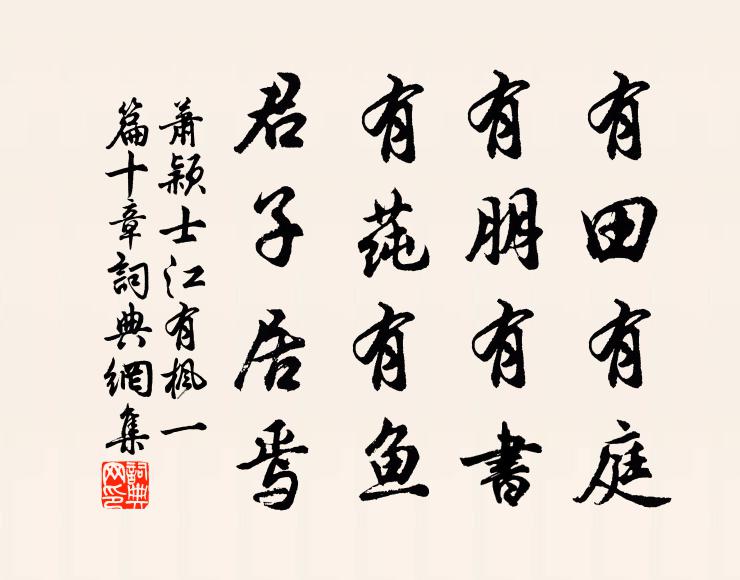 有田有庭
有朋有書
有莼有魚
君子居焉
蕭穎士江有楓一
篇十章詞典網集
詞典網印